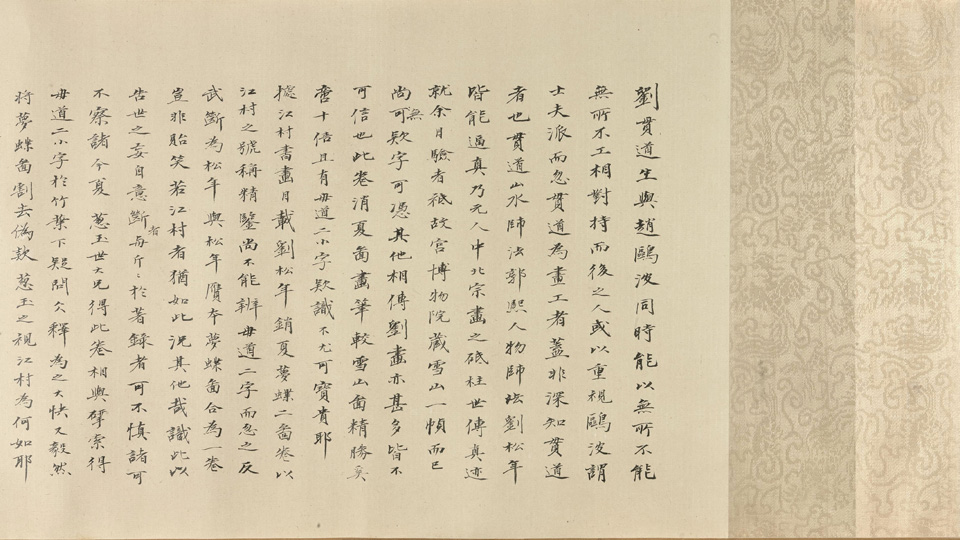 劉貫道生與趙鷗波同時能以無所不能
無所不工相對持而後之人或以重視鷗波謂
士夫派而忽貫道為畫工者蓋非深知貫道
者也貫道山水師法郭熙人物師法劉松年
皆能逼真乃元人中北宗畫之砥柱世傳真迹
就余目驗者祇故宮博物院藏雪山一幀而已
尚無可欵字可憑其他相傳劉畫亦甚多皆不
可信也此卷消夏圖畫筆較雪山圖精勝奚
啻十倍且有毋道二小字欵識不尤可寶貴耶
據江村書畫目載劉松年銷夏夢蝶二圖卷以
江村之號稱精鑒尚不能辨毋道二字而忽之反
武斷為松年與松年贋本夢蝶圖合為一卷
豈非貽笑若江村者猶如此況其他哉識此以
告世之妄自意斷者毎斤〻於著録者可不慎諸可
不察諸今夏蔥玉世大兄得此卷相與擘索得
毋道二小字於竹葉下疑問久釋為之大快又毅然
將夢蝶圖割去偽欵蔥玉之視江村為何如耶